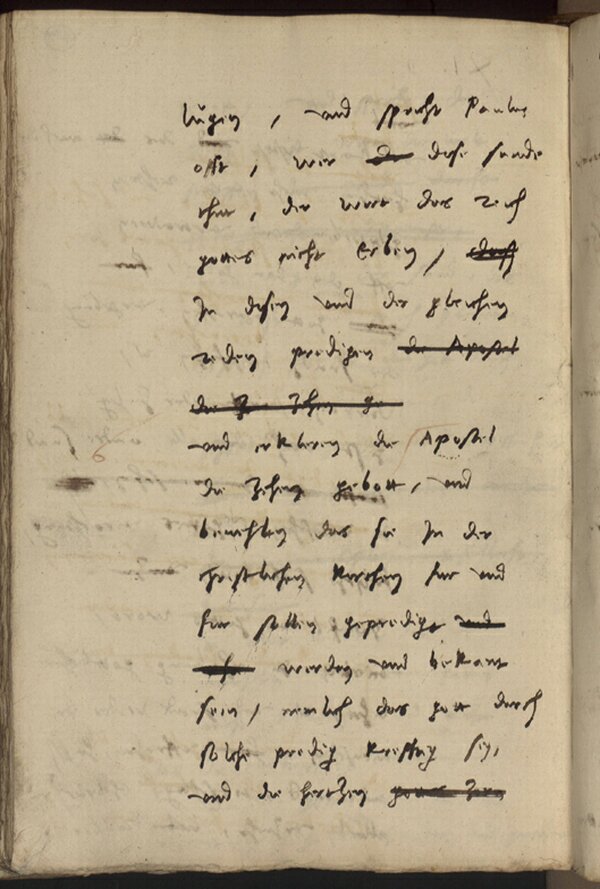 lugen / und spricht Paulus
offt / wer die dise sunde
thut, der wert das reich
gottes nicht Erben / dass
In disen und der gleichen
reden predigen die Apostel
die Z Zehen ge
und erkleren die Apostel
6
die Zehen gebott, und
bevehlen das sie In der
christlichen kirchen fur und
fur sollen gepredigt und
werden und bekant
sein / nemlich das gott durch
solche predig krefftig sey,
und die hertzen gottes